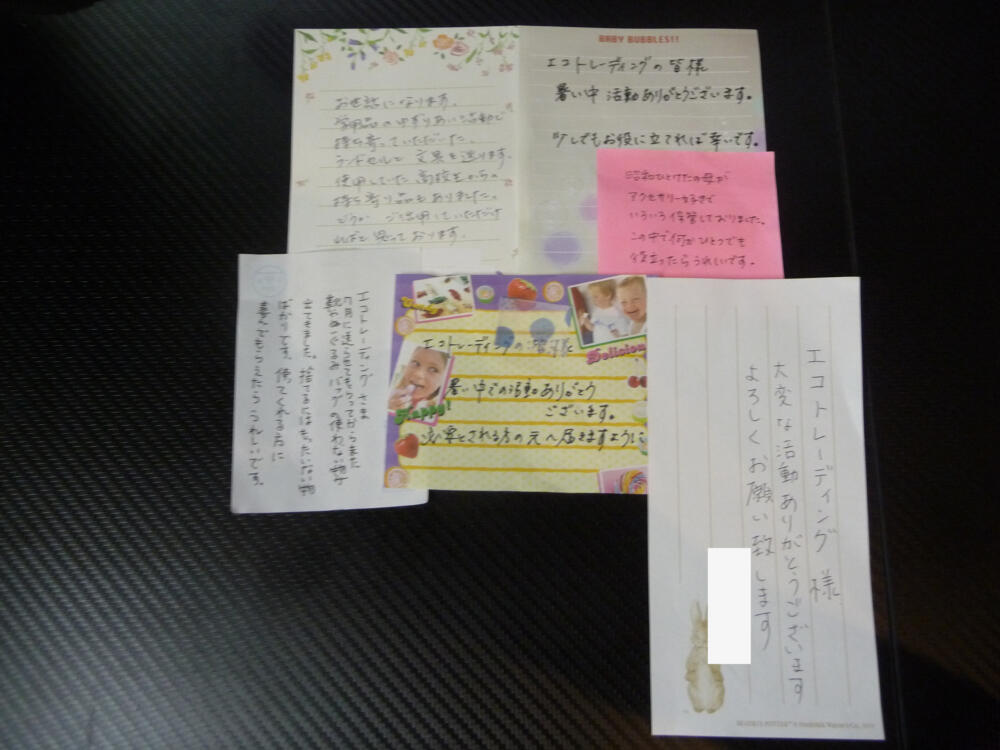 お世話になります。
学用品のゆずりあい活動で
持ち寄っていただいた、
ランドセルと文具を送ります。
使用していた高校生からの
持ち寄り品もありました。
どうか ご活用していただけ
ればと思っております。
BABY BUBBLES!!
エコトレーディングの皆様
暑い中 活動ありがとうございます。
少しでもお役に立てれば幸いです。
昭和ひとけたの母が
アクセサリー好きで
いろいろ保管しておりました。
この中で何かひとつでも
役立ったらうれしいです。
エコトレーディングさま
7月に送らせてもらってからまた
靴やぬいぐるみ バッグの使わない物が
立てきました。捨てるにはもったいない物
ばかりです。使てくれる方に
喜んでもらえたらうれしいです。
エコトレーディングの皆様
暑い中での活動ありがとう
ございます。
必要とされる方の元へ届きますように
Delicious
Happy!
エコトレーディング 様
大変な活動ありがとうございます
よろしくお願い致します
BEATRIX POTTER™ © Frederick Warne & Co.,